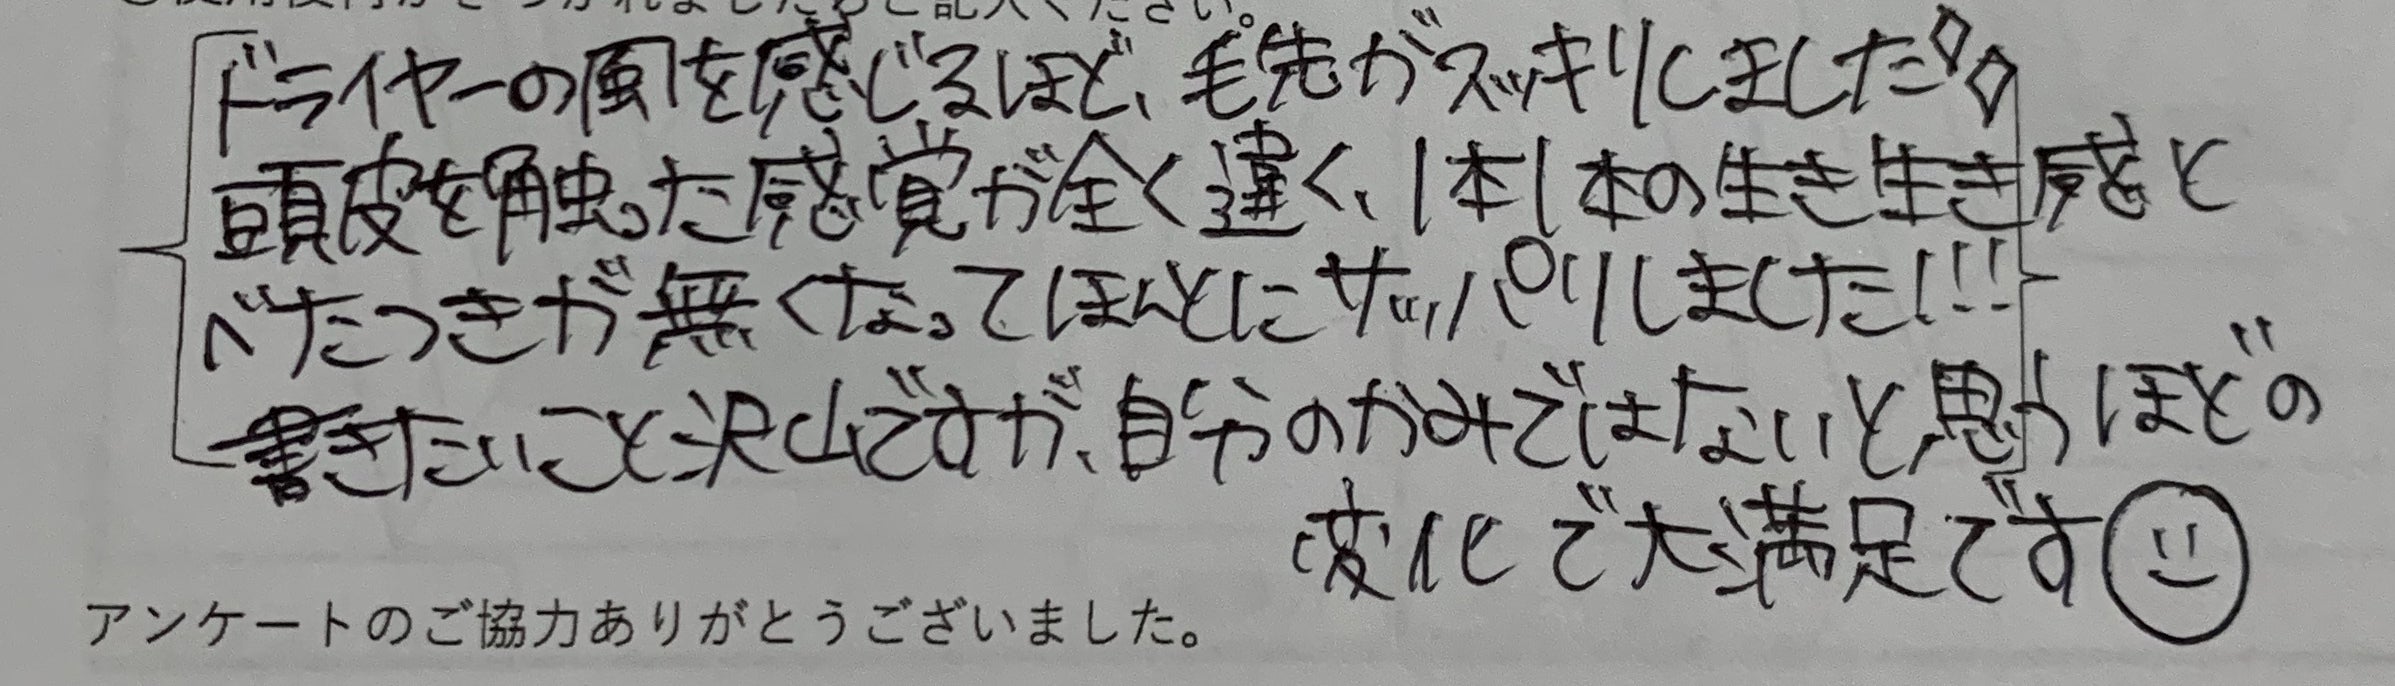 ご記入ください。
ドライヤーの風を感じるほど、毛先がスッキリしました
頭皮を触った感覚が全く違く、1本1本の生き生き感と
べたつきが無くなってほんとにサッパリしました!!!
書きたいこと沢山ですが、自分のかみではないと思うほどの
変化で大満足です
アンケートのご協力ありがとうございました。